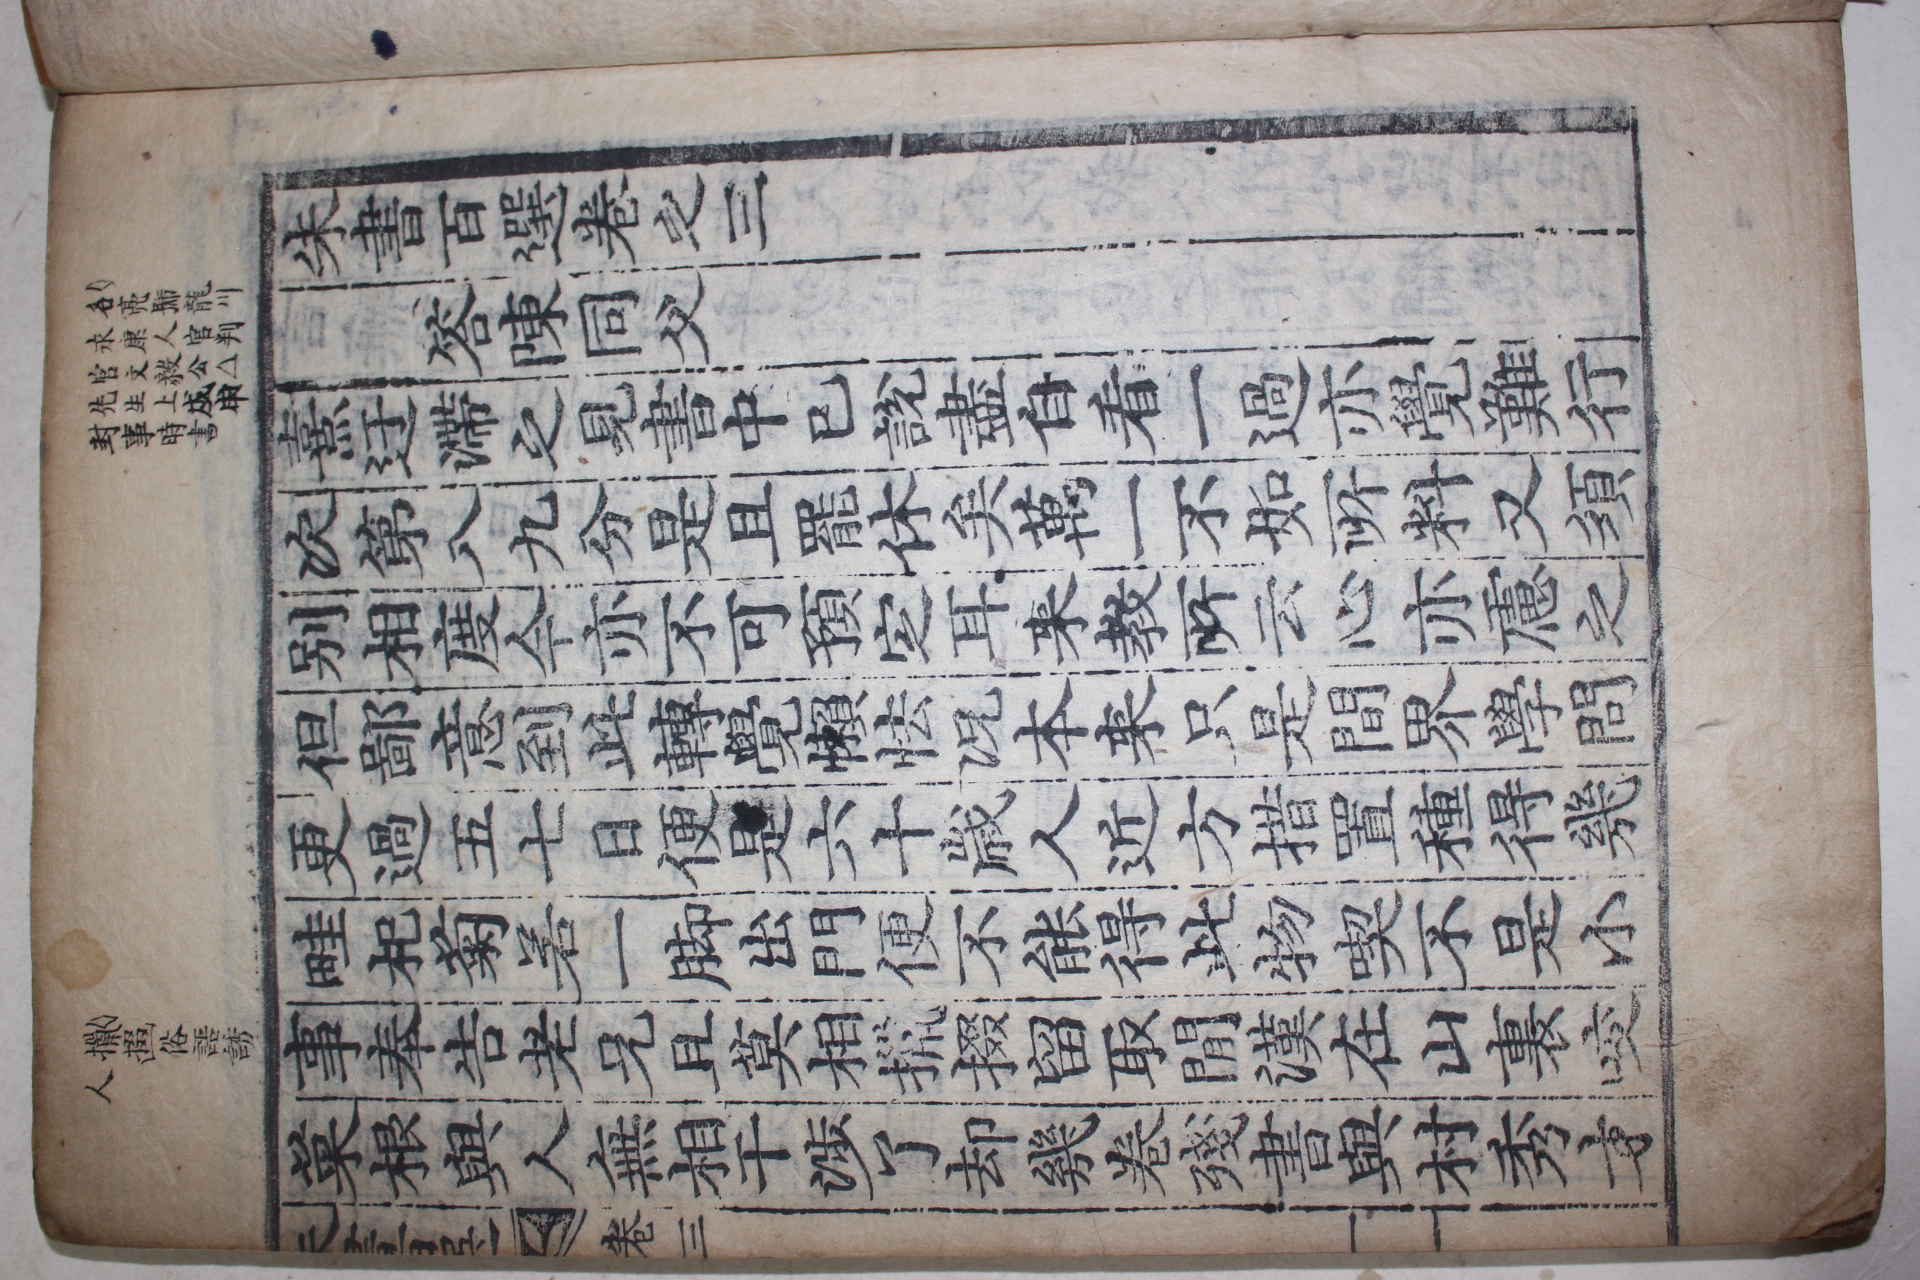 名亮號龍川
永康人官判
官文毅公△
先生上戊申
封事時書
攧掇俗語誘
人
朱書百選卷之三
答陳同父
熹迂滯之見書中已說盡自看一過亦覺難行
次第八九分是且罷休矣萬一不如所料又須
別相度今亦不可預定耳来教所云心亦慮之
但鄙意到此轉覺懶怯况本来只是間界學問
更過五七日便是六十歲人近方措置種得幾
畦杞菊若一脚出門便不能得此物喫不是小
事奉告老兄且莫相攛掇留取閒漢在山裏咬
菜根與人無相干涉了却幾卷殘書與村秀才
朱書百選
卷三
一